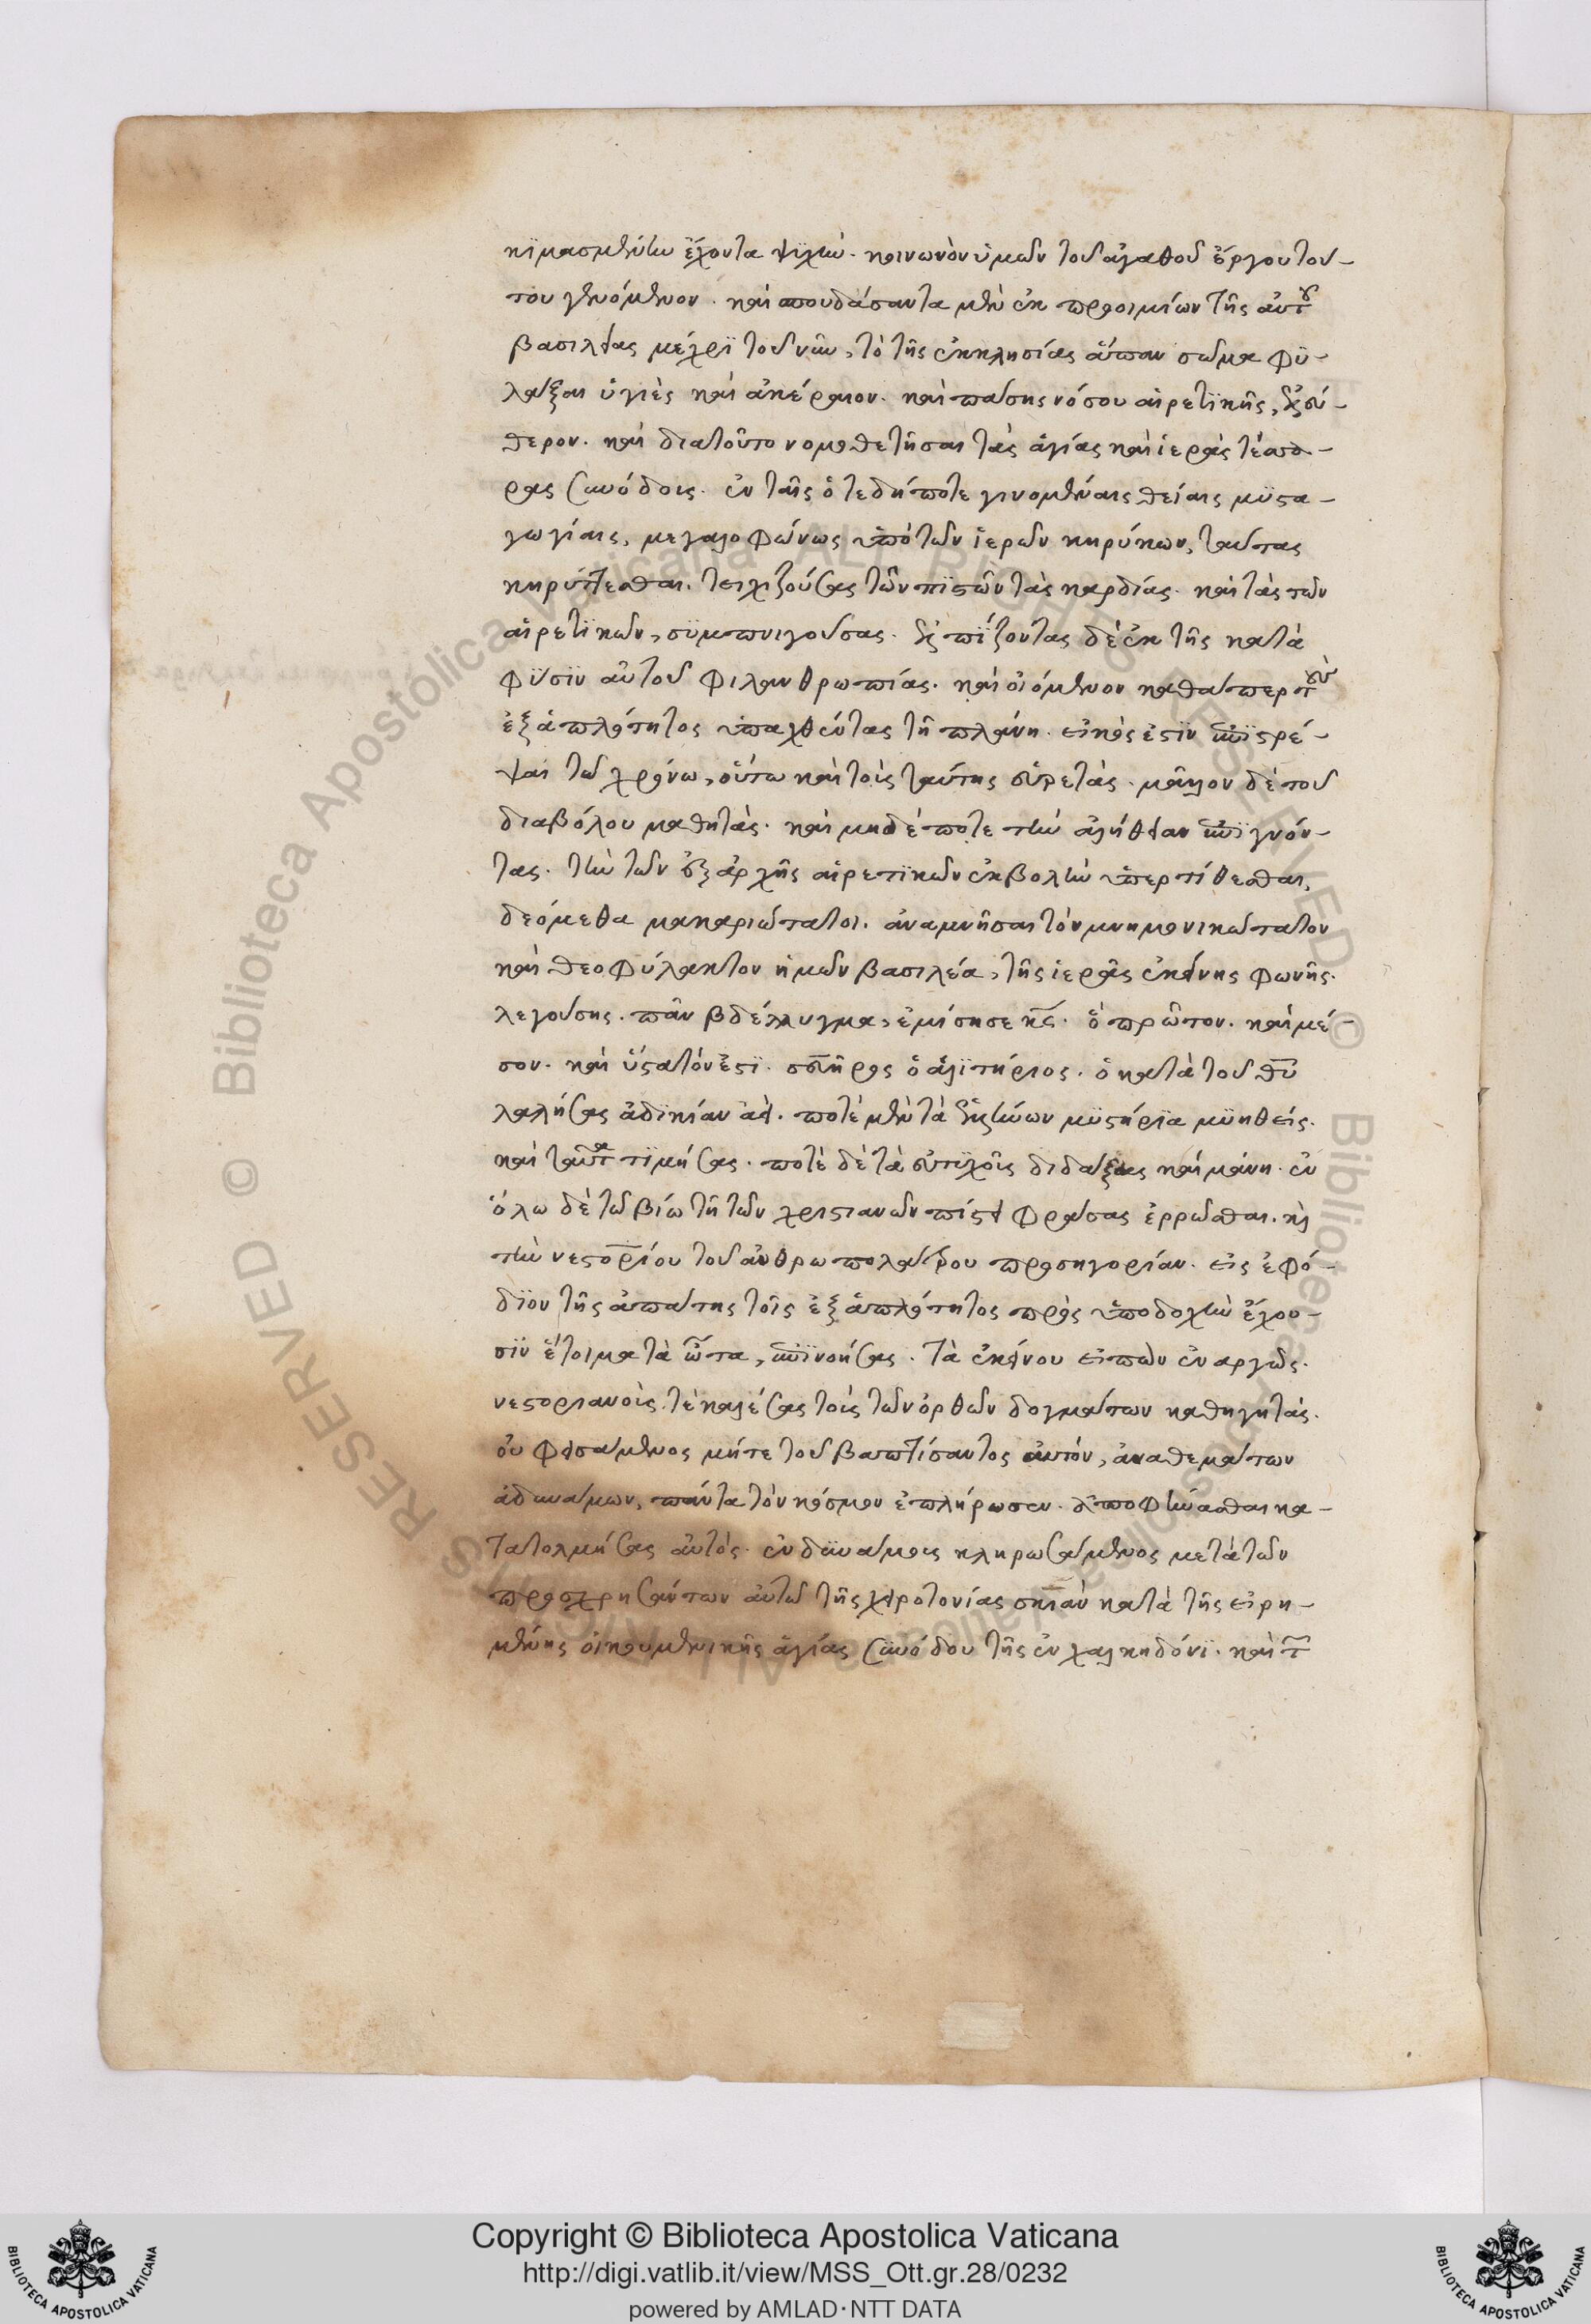 κϊμασμένην ἔχοντα ψυχήν. κοινωνὸν ὑμῶν τοῦ ἀγαθοῦ ἔργου τού-
του γενόμενον. καὶ σπουδάσαντα μὲν ἐκ προοιμίων τῆς αὐτοῦ
βασιλείας μέχρϊ τοῦ νῦν, τὸ τῆς ἐκκλησίας ἅπαν σῶμα φϋ-
λάξαι ὑγιὲς καὶ ἀκέραιον. καὶ πάσης νόσου αἱρετϊκῆς, ἐλεύ-
θερον. καὶ διατοῦτο νομοθετῆσαι τὰς ἁγίας καὶ ἱερὰς τέσσα-
ρας συνόδους. ἐν ταῖς ὁτεδήποτε γινομέναις θείαις μϋστα-
γωγίαις, μεγαλοφώνως ὑπὸ τῶν ἱερῶν κηρύκων, ταύτας
κηρύττεσθαι. τειχιζούσας τῶν πϊστῶν τὰς καρδίας. καὶ τὰς τῶν
αἱρετϊκῶν, σϋμπνιγούσας. ἐλπΐζοντας δὲ ἐκ τῆς κατὰ
φΰσϊν αὐτοῦ φιλανθρωπίας. καὶ οἰόμενον καθάπερ τοὺς
ἐξ ἁπλότητος ὑπαχθέντας τῆ πλάνη. εἰκός ἐστϊν ἐπϊστρέ-
ψαι τῶ χρόνω, οὕτω καὶ τοὺς ταύτης εὑρετὰς. μᾶλλον δὲ τοῦ
διαβόλου μαθητὰς. καὶ μηδέποτε τὴν ἀλήθειαν ἐπϊγνόν-
τας. τὴν τῶν ἐξαρχῆς αἱρετϊκῶν ἐκβολὴν ὑπερτίθεσθαι,
δεόμεθα μακαριώτατοι. ἀναμνῆσαι τὸν μνημονικώτατον
καὶ θεοφύλακτον ἡμῶν βασιλέα, τῆς ἱερᾶς ἐκείνης φωνῆς.
λεγούσης. πᾶν βδέλλυγμα, ἐμίσησε κς. ὃ πρῶτον. καὶ μέ-
σον. καὶ ὕστατόν ἐστϊ. σευῆρος ὁ ἀλϊτήριος. ὁ κατὰ τοῦ θυ
λαλήσας ἀδϊκίαν ἀεί. ποτὲ μὲν τὰ ἑλλήνων μϋστήρϊα μϋηθείς.
καὶ ταῦτα τϊμήσας. ποτὲ δὲ τὰ εὐτϋχοῦς διδάξας καὶ μάνη. ἐν
ὅλω δὲ τῶ βίω τῆ τῶν χριστιανῶν πίστει φράσας ἐρρῶσθαι. κὶ
τὴν νεστορίου τοῦ ἀνθρωπολάτρου προσηγορίαν. εἰς ἐφό-
δϊον τῆς ἀπάτης τοῖς ἐξ ἁπλότητος πρὸς ὑποδοχὴν ἔχου-
σϊν ἕτοιμα τὰ ὦτα, ἐπϊνοήσας. τὰ ἐκείνου εἰπὼν ἐναργῶς.
νεστοριανοὺς τὲ καλέσας τοὺς τῶν ὀρθῶν δογμάτων καθηγητὰς.
οὐ φεισάμενος μήτε τοῦ βαπτίσαντος αὐτόν, ἀναθεμάτων
ἀδυνάμων, πάντα τὸν κόσμον ἐπλήρωσεν. ἀποφήνασθαι κα-
τατολμήσας αὐτὸς. ἐν δϋνάμεις κληρωσάμενος μετὰ τῶν
προσχρησάντων αὐτῶ τῆς χειροτονίας σκιὰν κατὰ τῆς εἰρη-
μένης οἰκουμενικῆς ἁγίας σϋνόδου τῆς ἐν χαλκηδόνϊ. καὶ τ